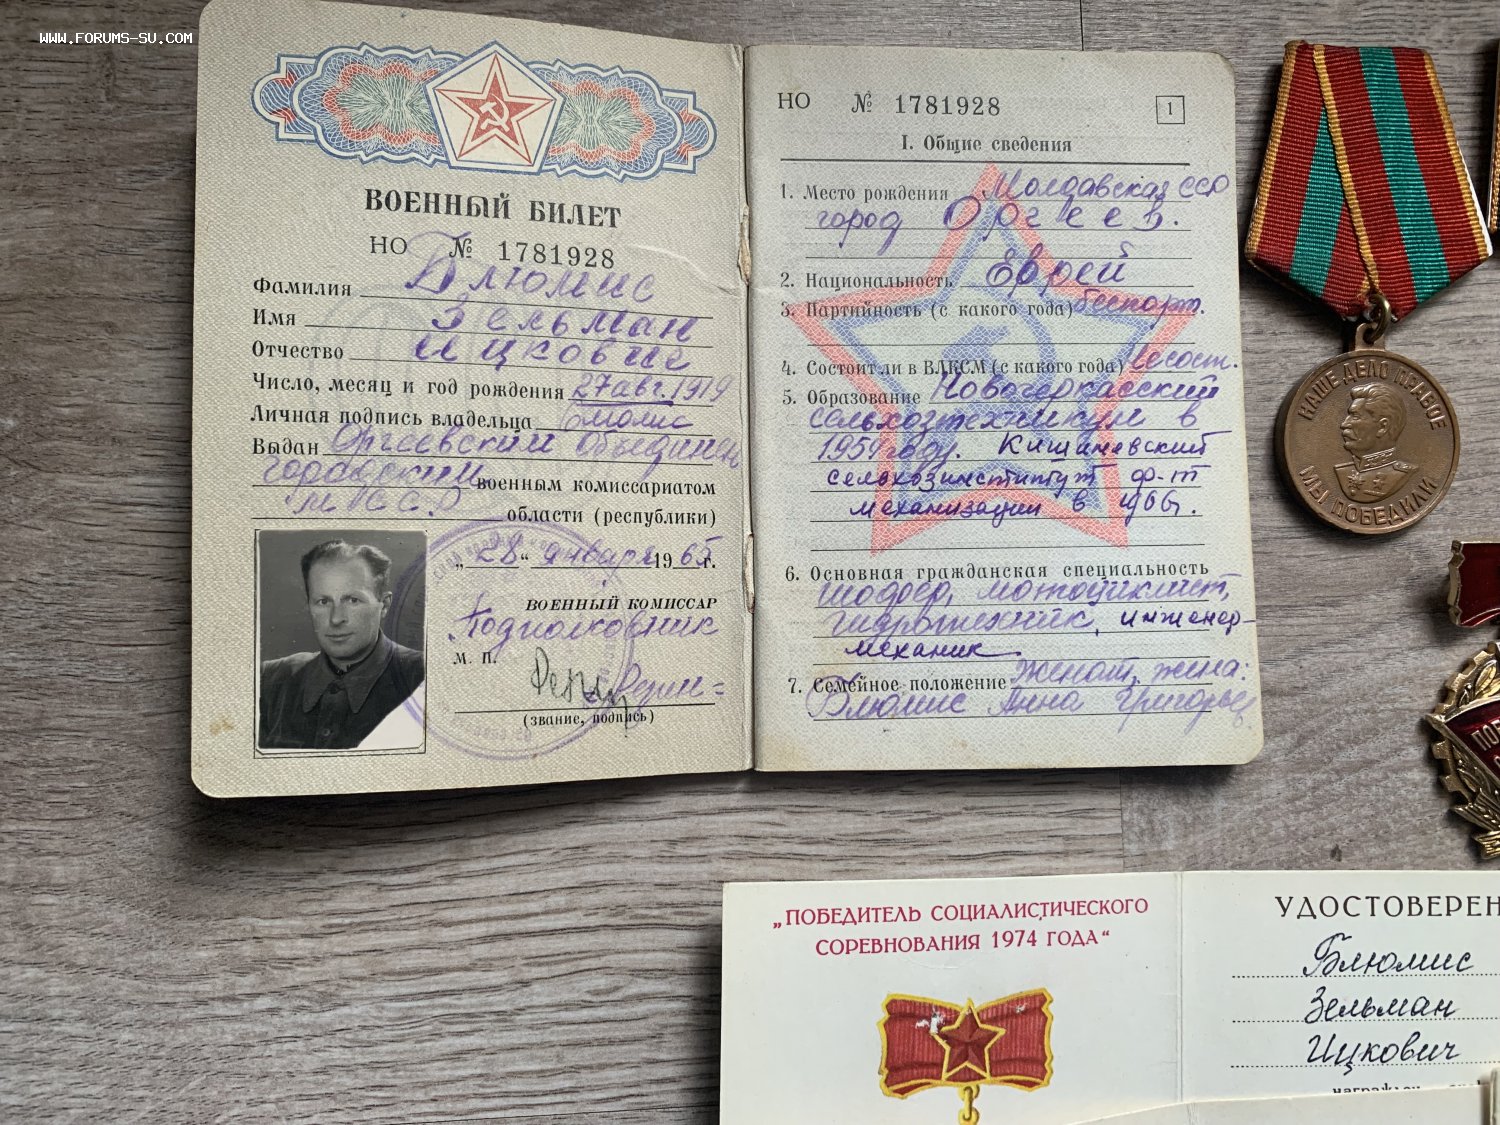 WWW.FORUMS-SU.COM
ВОЕННЫЙ БИЛЕТ
НО № 1781928
Фамилия Блюмис
Имя Зельман
Отчество Ицкович
Число, месяц и год рождения 27 авг. 1919
Личная подпись владельца Блюмис
Выдан Оргеевский Объединен
городской военным комиссариатом
МССР области (республики)
„28“ января 1965 г.
ВОЕННЫЙ КОМИССАР
Подполковник
М. П.
(звание, подпись)
НО № 1781928
1
I. Общие сведения
1. Место рождения Молдавская ССР
город Оргеев.
2. Национальность Еврей
3. Партийность (с какого года) беспарт.
4. Состоит ли в ВЛКСМ (с какого года) несост.
5. Образование Новочеркасский
сельхозтехникум в
1959 году. Кишиневский
сельхозинститут ф-т
механизации в 1966г.
6. Основная гражданская специальность
шофер, мотоциклист,
гидротехник, инженер-
механик.
7. Семейное положение женат, жена:
Блюмис Анна Григорьев
НАШЕ ДЕЛО ПРАВОЕ
МЫ ПОБЕДИЛИ
„ПОБЕДИТЕЛЬ СОЦИАЛИСТИЧЕСКОГО
СОРЕВНОВАНИЯ 1974 ГОДА“
УДОСТОВЕРЕН
Блюмис
Зельман
Ицкович